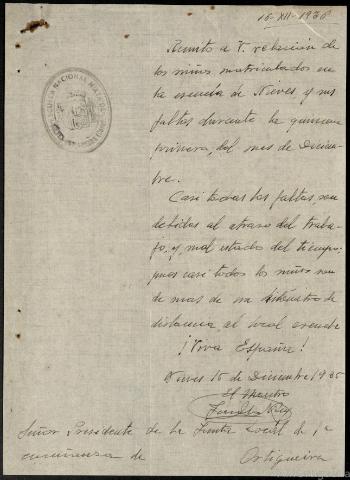 16-XII-1936
Remito a V. relación de
los niños matriculados en
la escuela de Nieves, y sus
faltas durante la quincena
primera, del mes de Diciem-
bre.
Casi todas las faltas, son
debidas al atraso del traba-
jo, y, mal estado del tiempo,
pues casi todos los niños son
de mas de un kilómetro de
distancia al local escuela
¡Viva España!
Nieves 15 de Diciembre 1936
El Maestro
Señor Presidente de la Junta Local de 1ª
enseñanza de Ortigueira